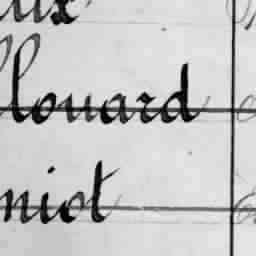 aux
llouard
niot